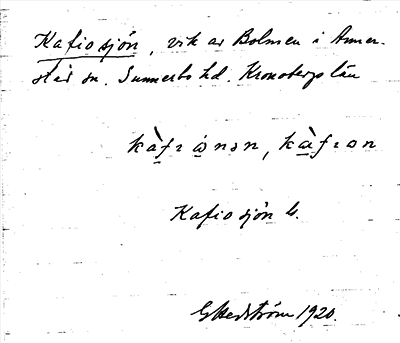 Kafiosjön, vik av Bolmen i Anner-
stad sn. Sunnerbo hd. Kronobergs län
kàfɪ ò̤nən, kàfɪən
Kafiosjön b.
G Hedström 1920.